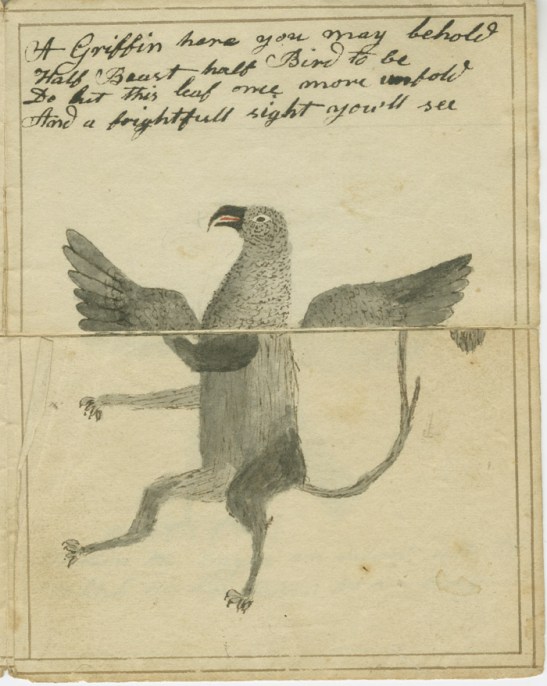 A Griffin here you may behold
Half Beast half Bird to be
Do but this leaf once more unfold
And a frightfull sight you'll see